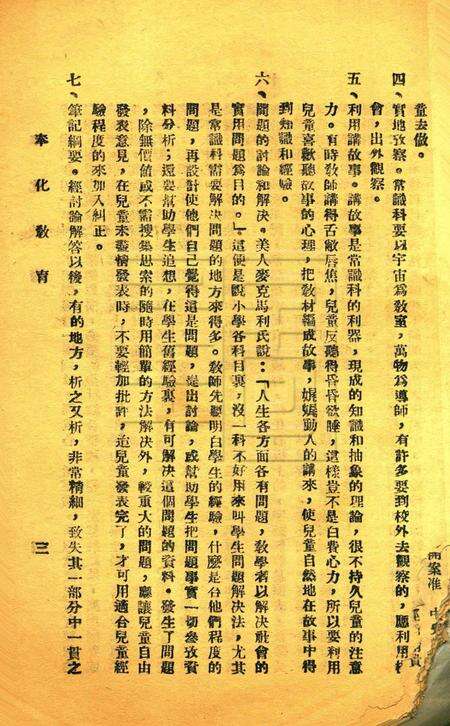 童去做。
四、實地攷察。常識科要以宇宙爲敎室，萬物爲導師，有許多要到校外去觀察的，應利用
會，出外觀察。
五、利用講故事。講故事是常識科的利器，現成的知識和抽象的理論，很不持久兒童的注意
力。有時敎師講得舌敝唇焦，兒童反聽得昏昏欲睡，這樣豈不是白費心力，所以要利用
兒童喜歡聽故事的心理，把敎材編成故事，娓娓動人的講來，使兒童自然地在故事中得
到知識和經驗。
六、問題的討論和解決。美人麥克馬利氏說：「人生各方面各有問題，敎學者以解決社會的
實用問題爲目的。」這便是說小學各科目裏，沒一科不好用來叫學生問題解決法，尤其
是常識科需要解決問題的地方來得多。敎師先要明白學生的經驗，什麼是合他們程度的
問題，再設計使他們自己覺得這是問題，提出討論，或幫助學生把問題事實一切參攷資
料分析；還要幫助學生追想，在學生舊經驗裏，有可解決這個問題的資料。發生了問題
，除無價値或不需搜集思索的隨時用簡單的方法解決外，較重大的問題，應讓兒童自由
發表意見，在兒童未盡情發表時，不要輕加批評，迨兒童發表完了，才可用適合兒童經
驗程度的來加入糾正。
七、筆記綱要。經討論解答以後，有的地方，析之又析，非常精細，致失其一部分中一貫之
奉化敎育
三